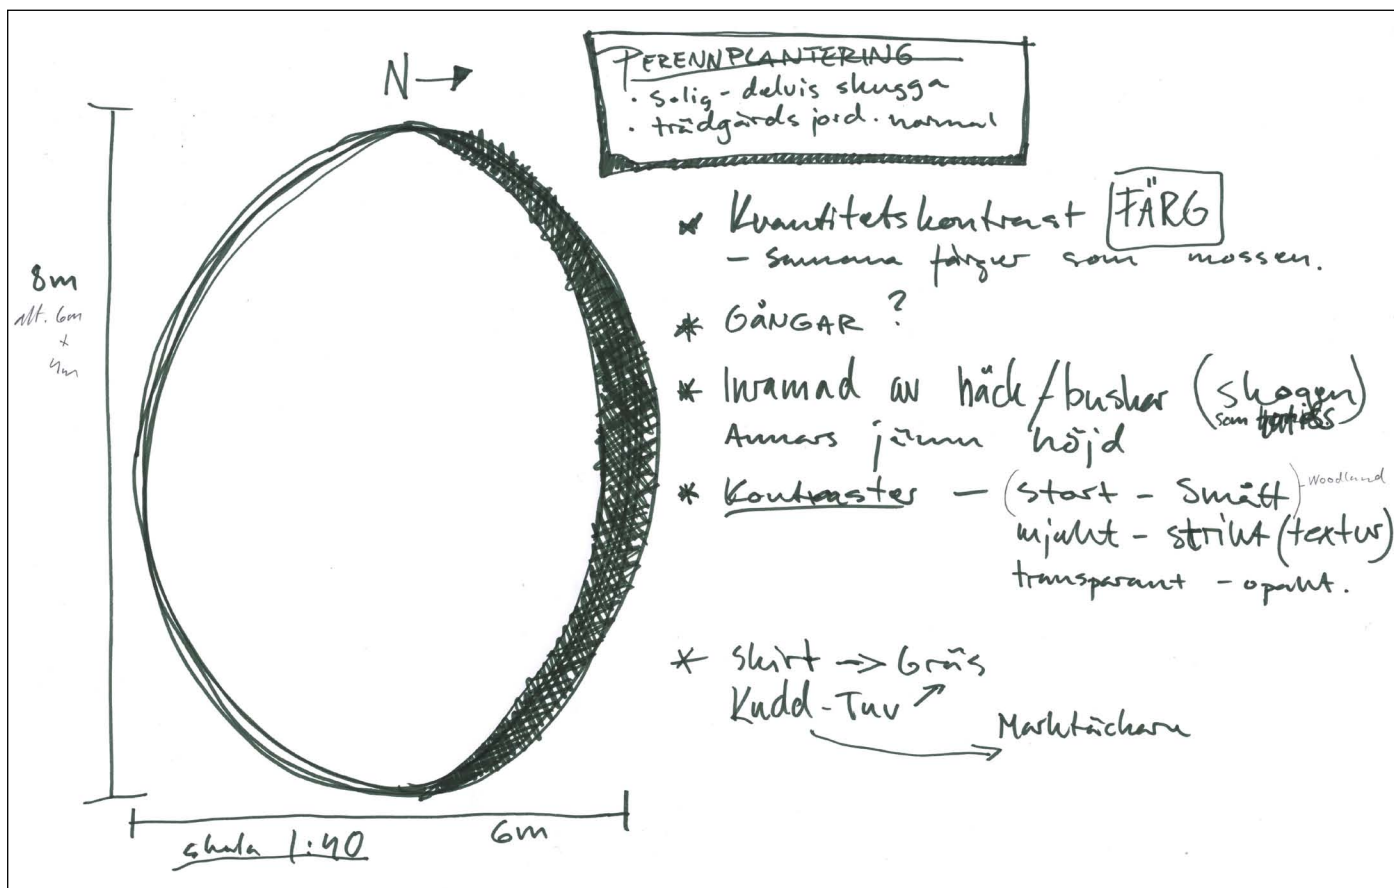 N
PERENNPLANTERING
· Solig - delvis skugga
· trädgårdsjord. normal
* Kvantitetskontrast FÄRG
- Samma färger som mossen.
* GÅNGAR ?
* Inramad av häck/buskar (skogen)
som
Annars jämn höjd
* Kontraster - (stort - Smått) - Woodland
mjukt - strikt (textur)
transparant - opakt.
* Skirt -> Gräs
Kudd-Tuv
Marktäckare
8m
alt. 6m
+
4m
6m
skala 1:40